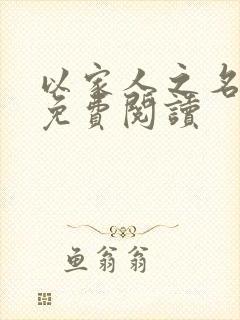 以家人之名
免費閱讀
鱼翁翁